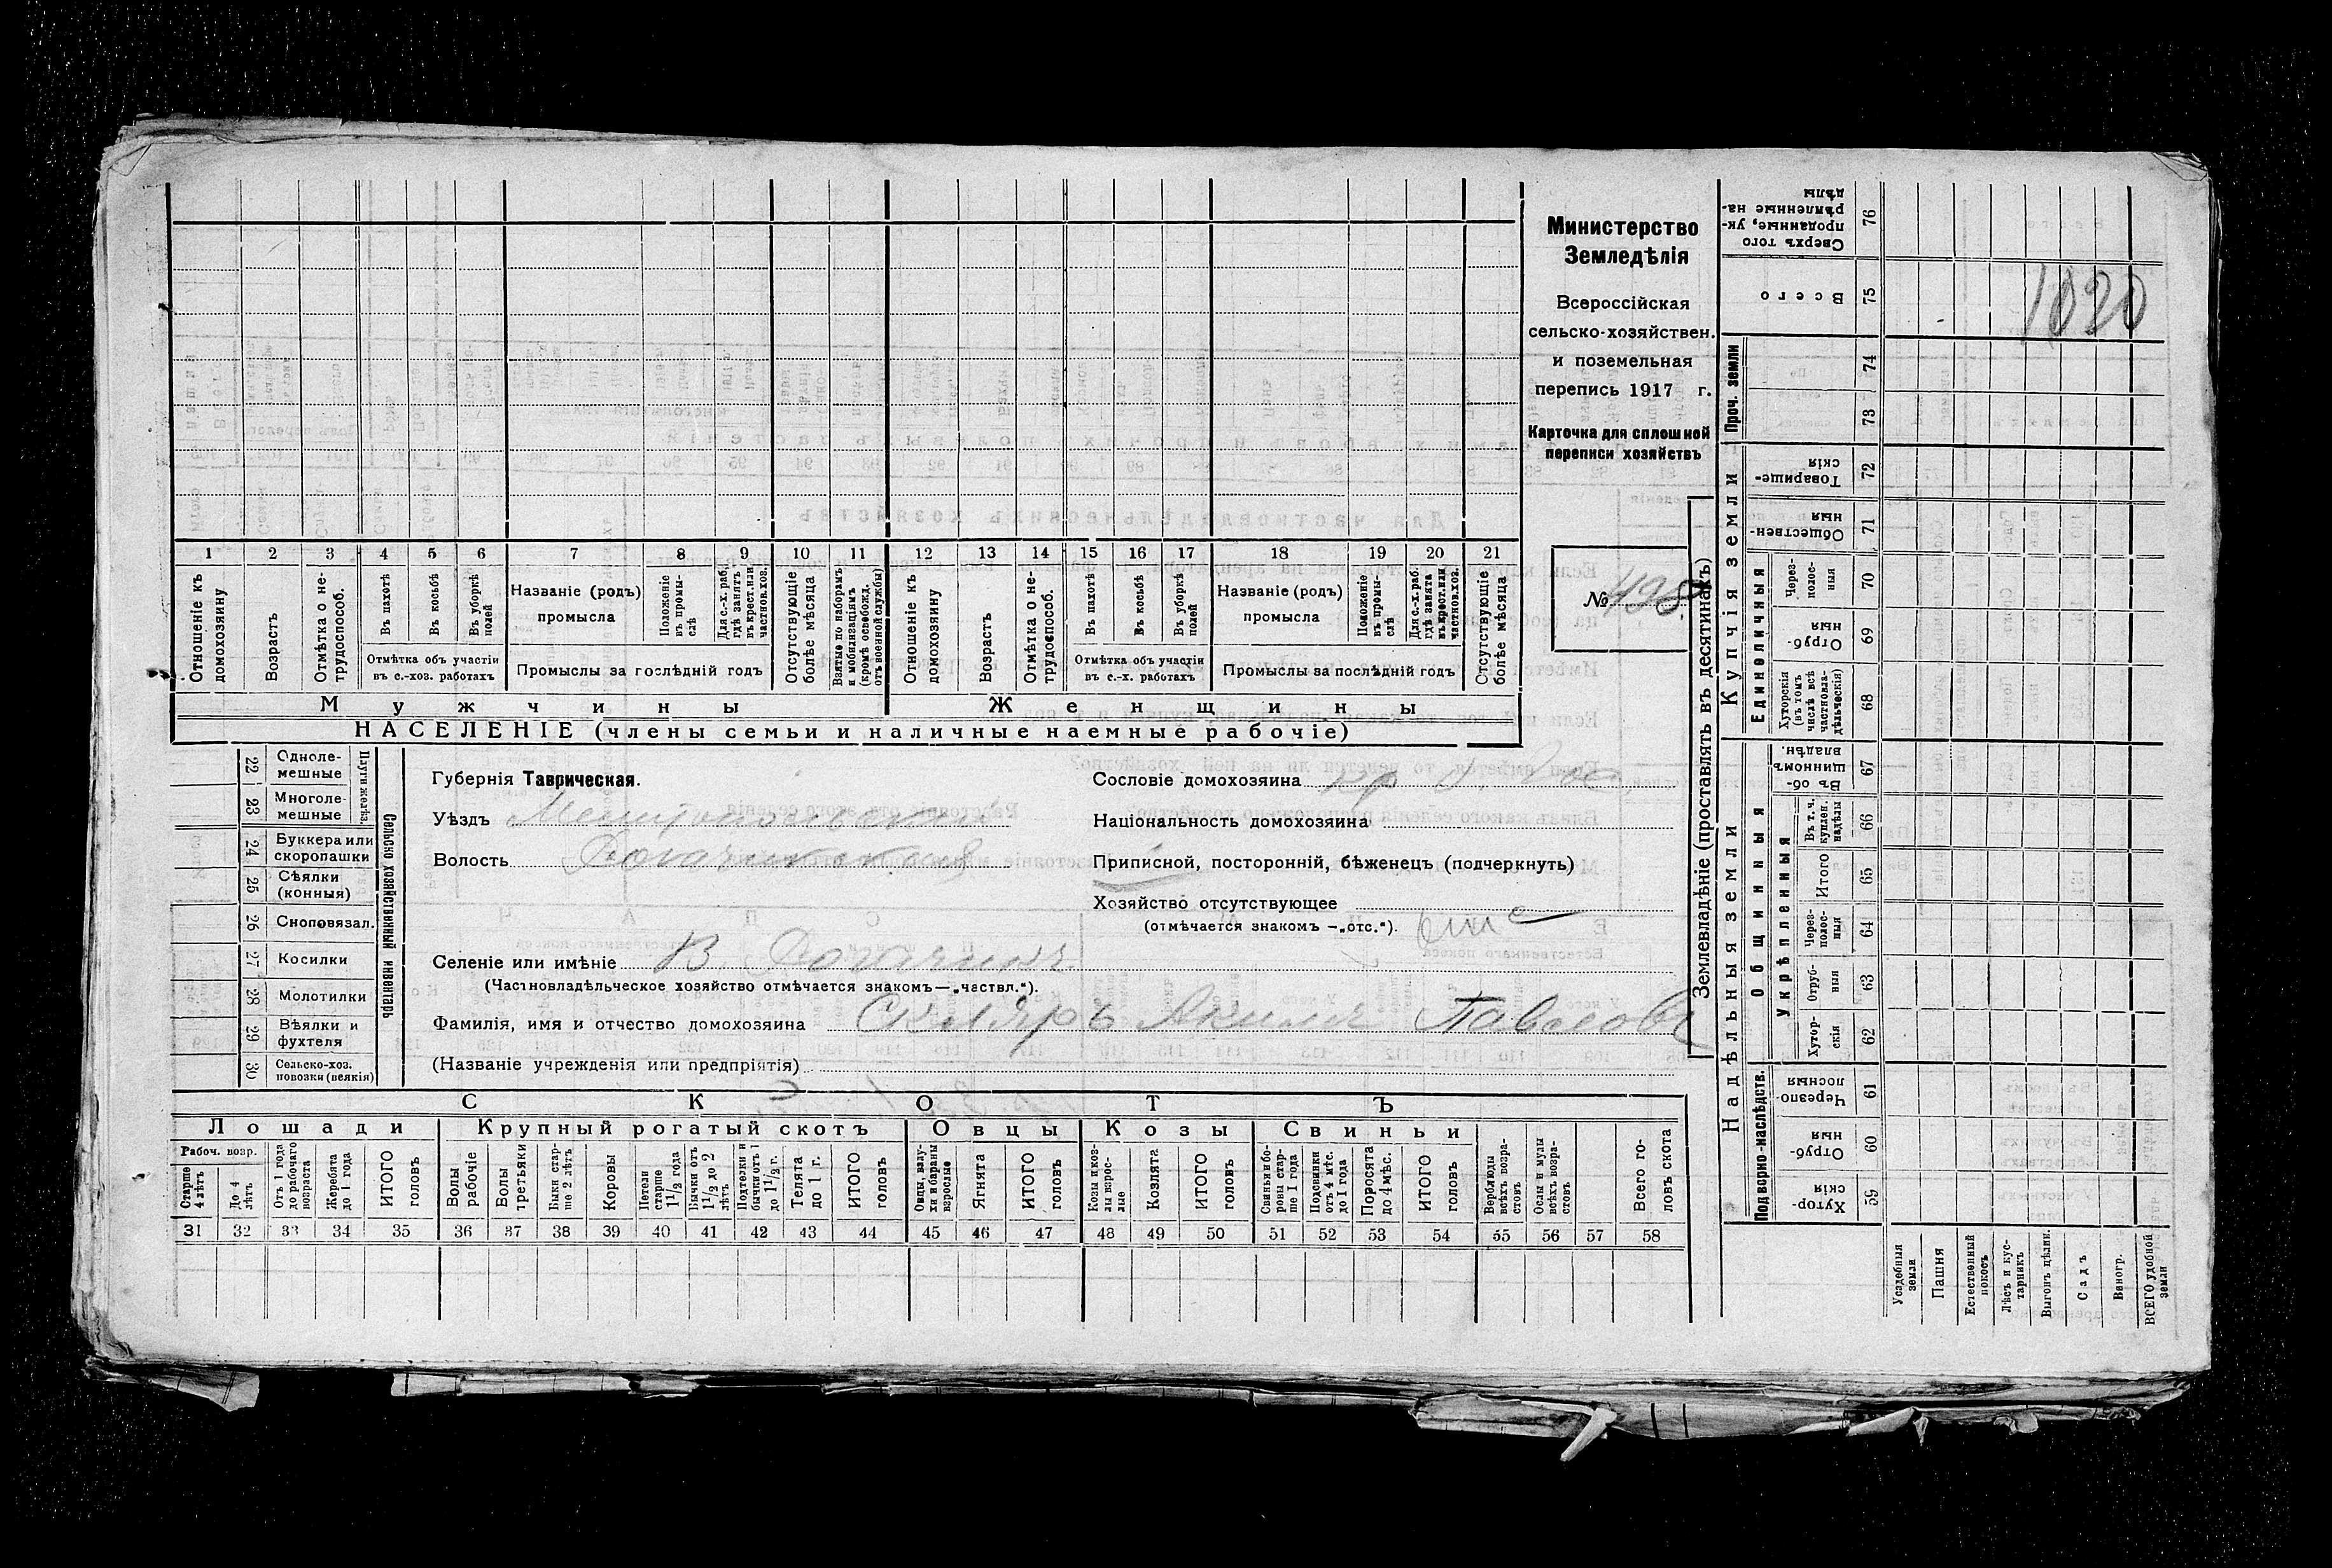 1 2 3 4 5 6 7 8 9 10 11 12 13 14 15 16 17 18 19 20 21
Отношеніе къ домохозяину
Возрастъ
Отмѣтка о не-
трудоспособ.
Въ пахотѣ
Въ косьбѣ
Въ уборкѣ полей
Отмѣтка объ участіи
въ с.-хоз. работахъ
Названіе (родъ)
промысла
Положеніе въ промы-
слѣ
Для с.-х. раб.
гдѣ занятъ
въ крест. или
частнов. хоз.
Промыслы за послѣдній годъ
Отсутствующіе
болѣе мѣсяца
Взятые по наборамъ
и мобилизаціямъ
(кромѣ освобожд.
отъ военной службы)
Отношеніе къ
домохозяину
Возрастъ
Отмѣтка о не-
трудоспособ.
Въ пахотѣ
Въ косьбѣ
Въ уборкѣ полей
Отмѣтка объ участіи
въ с.-х. работахъ
Названіе (родъ)
промысла
Положеніе въ промы-
слѣ
Для с.-х. раб.
гдѣ занята
въ крест. или
частнов. хоз.
Промыслы за послѣдній годъ
Отсутствующіе
болѣе мѣсяца
Мужчины
Женщины
НАСЕЛЕНІЕ (члены семьи и наличные наемные рабочіе)
Министерство
Земледѣлія
Всероссійская
сельско-хозяйствен.
и поземельная
перепись 1917 г.
Карточка для сплошной
переписи хозяйствъ
№ 498
22 Одноле-
мешные
23 Многоле-
мешные
Плуги желѣз.
24 Буккера или
скоропашки
25 Сѣялки
(конныя)
26 Сноповязал.
27 Косилки
28 Молотилки
29 Вѣялки и
фухтеля
30 Сельско-хоз.
повозки (всякія)
Сельско хозяйственный инвентарь
Губернія Таврическая.
Уѣздъ Мелитопольскій
Волость Рогачикская
Сословіе домохозяина кр
Національность домохозяина
Приписной, посторонній, бѣженецъ (подчеркнуть)
Хозяйство отсутствующее
(отмѣчается знакомъ —„отс.“).
Селеніе или имѣніе В. Рогачикъ
(Частновладѣльческое хозяйство отмѣчается знакомъ—„частвл.“).
Фамилія, имя и отчество домохозяина Скляръ Акимъ Павлов
(Названіе учрежденія или предпріятія)
СКОТЪ
Лошади Крупный рогатый скотъ Овцы Козы Свиньи
Рабоч. возр.
Старше 4 лѣтъ
До 4 лѣтъ
Отъ 1 года до рабочаго возраста
Жеребята до 1 года
ИТОГО головъ
Волы рабочіе
Волы третьяки
Быки стар-
ше 2 лѣтъ
Коровы
Нетели старше 1 1/2 года
Бычки отъ 1 1/2 до 2 лѣтъ
Подтелки и бычки отъ 1 до 1 1/2 г.
Телята до 1 г.
ИТОГО головъ
Овцы, валу-
хи и бараны взрослые
Ягнята
ИТОГО головъ
Козы и коз-
лы взрос-
лые
Козлята
ИТОГО головъ
Свиньи и бо-
ровы стар-
ше 1 года
Подсвинки отъ 4 мѣс. до 1 года
Поросята до 4 мѣс.
ИТОГО головъ
Верблюды всѣхъ возра-
стовъ
Ослы и мулы всѣхъ возра-
стовъ
Всего го-
ловъ скота
31 32 33 34 35 36 37 38 39 40 41 42 43 44 45 46 47 48 49 50 51 52 53 54 55 56 57 58
Землевладѣніе (проставлять въ десятинахъ)
Купчія земли
Надѣльныя земли
Проч. земли
Единоличныя
Общинныя
Укрѣпленныя
Подворно-наслѣдств.
Сверхъ того проданные, ук-
рѣпленные на-
дѣлы 76
Всего 75
1020
74
73
Товарище-
скія 72
Обществен-
ныя 71
Через-
полос-
ныя 70
Отруб-
ныя 69
Хуторскія (въ томъ числѣ всѣ частновла-
дѣльческія) 68
Въ об-
щинномъ владѣн. 67
Въ т. ч. куплен. надѣлы 66
Итого 65
Через-
полос-
ныя 64
Отруб-
ныя 63
Хутор-
скія 62
Черезпо-
лосныя 61
Отруб-
ныя 60
Хутор-
скія 59
Усадебныя земли
Пашня
Естественный покосъ
Лѣсъ и кус-
тарникъ
Выгонъ цѣлин.
Садъ
Виногр.
ВСЕГО удобной земли